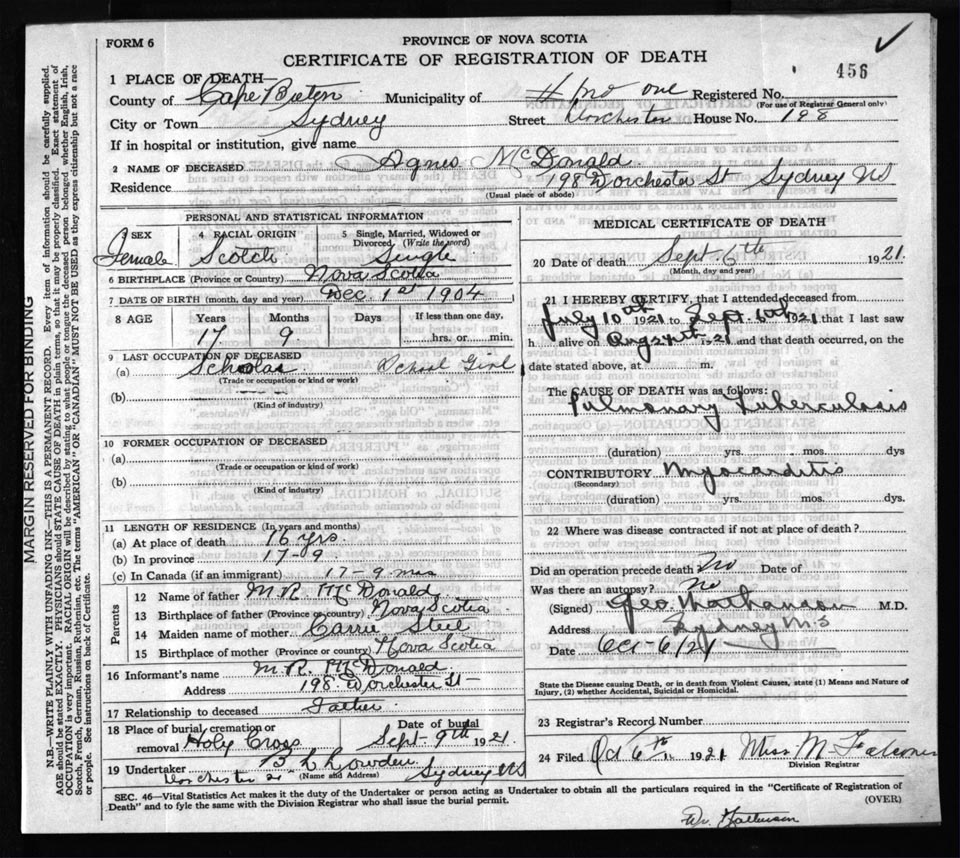 FORM 6
PROVINCE OF NOVA SCOTIA
CERTIFICATE OF REGISTRATION OF DEATH
456
1 PLACE OF DEATH—
County of Cape Breton Municipality of # one Registered No.
(For use of Registrar General only)
City or Town Sydney Street Dorchester House No. 198
If in hospital or institution, give name
2 NAME OF DECEASED Agnes McDonald
Residence 198 Dorchester St Sydney NS
(Usual place of abode)
PERSONAL AND STATISTICAL INFORMATION
SEX 4 RACIAL ORIGIN 5 Single, Married, Widowed or Divorced (Write the word)
Female Scotch Single
6 BIRTHPLACE (Province or Country) Nova Scotia
7 DATE OF BIRTH (month, day and year) Dec 1st 1904
8 AGE Years Months Days If less than one day,
17 9 hrs. or min.
9 LAST OCCUPATION OF DECEASED
(a) Scholar School Girl
(Trade or occupation or kind or work)
(b)
(Kind of industry)
10 FORMER OCCUPATION OF DECEASED
(a)
(Trade or occupation or kind of work)
(b)
(Kind of industry)
11 LENGTH OF RESIDENCE (In years and months)
(a) At place of death 16 yrs.
(b) In province 17-9
(c) In Canada (if an immigrant) 17-9 mos
Parents
12 Name of father M. R. McDonald
13 Birthplace of father (Province or country) Nova Scotia
14 Maiden name of mother Carrie Steel
15 Birthplace of mother (Province or country) Nova Scotia
16 Informant's name M. R. McDonald
Address 198 Dorchester St
17 Relationship to deceased Father
18 Place of burial, cremation or removal Holy Cross Date of burial Sept 9th 1921
19 Undertaker Lowden
Dorchester St (Name and Address) Sydney NS
MEDICAL CERTIFICATE OF DEATH
20 Date of death Sept 6th 1921
(Month, day and year)
21 I HEREBY CERTIFY, that I attended deceased from
July 10th 1921 to Sept. 1921 that I last saw
h alive on Aug 1921 and that death occurred, on the
date stated above, at m.
The CAUSE OF DEATH was as follows:
Pulmonary Tuberculosis
(duration) yrs. mos. dys
CONTRIBUTORY Myocarditis
(Secondary)
(duration) yrs. mos. dys.
22 Where was disease contracted if not at place of death?
Did an operation precede death No Date of
Was there an autopsy? No
(Signed) Geo. M.D.
Address Sydney N.S
Date Oct-6/21
State the Disease causing Death, or in death from Violent Causes, state (1) Means and Nature of Injury, (2) whether Accidental, Suicidal or Homicidal.
23 Registrar's Record Number
24 Filed Oct 6th 1921 Miss M
Division Registrar
SEC. 46—Vital Statistics Act makes it the duty of the Undertaker or person acting as Undertaker to obtain all the particulars required in the "Certificate of Registration of
Death" and to fyle the same with the Division Registrar who shall issue the burial permit. (OVER)
MARGIN RESERVED FOR BINDING
N.B.—WRITE PLAINLY WITH UNFADING INK—THIS IS A PERMANENT RECORD. Every item of information should be carefully supplied.
AGE should be stated EXACTLY. PHYSICIANS should STATE CAUSE OF DEATH in plain terms, so that it may be properly classified. Exact statement of
OCCUPATION is very important. RACIAL ORIGIN will be described by stating to what people or tongue the deceased person belonged, whether English, Irish,
Scotch, French, German, Russian, Ruthenian, etc. The terms "AMERICAN" OR "CANADIAN" MUST NOT BE USED as they express citizenship but not a race
or people. See instructions on back of Certificate.